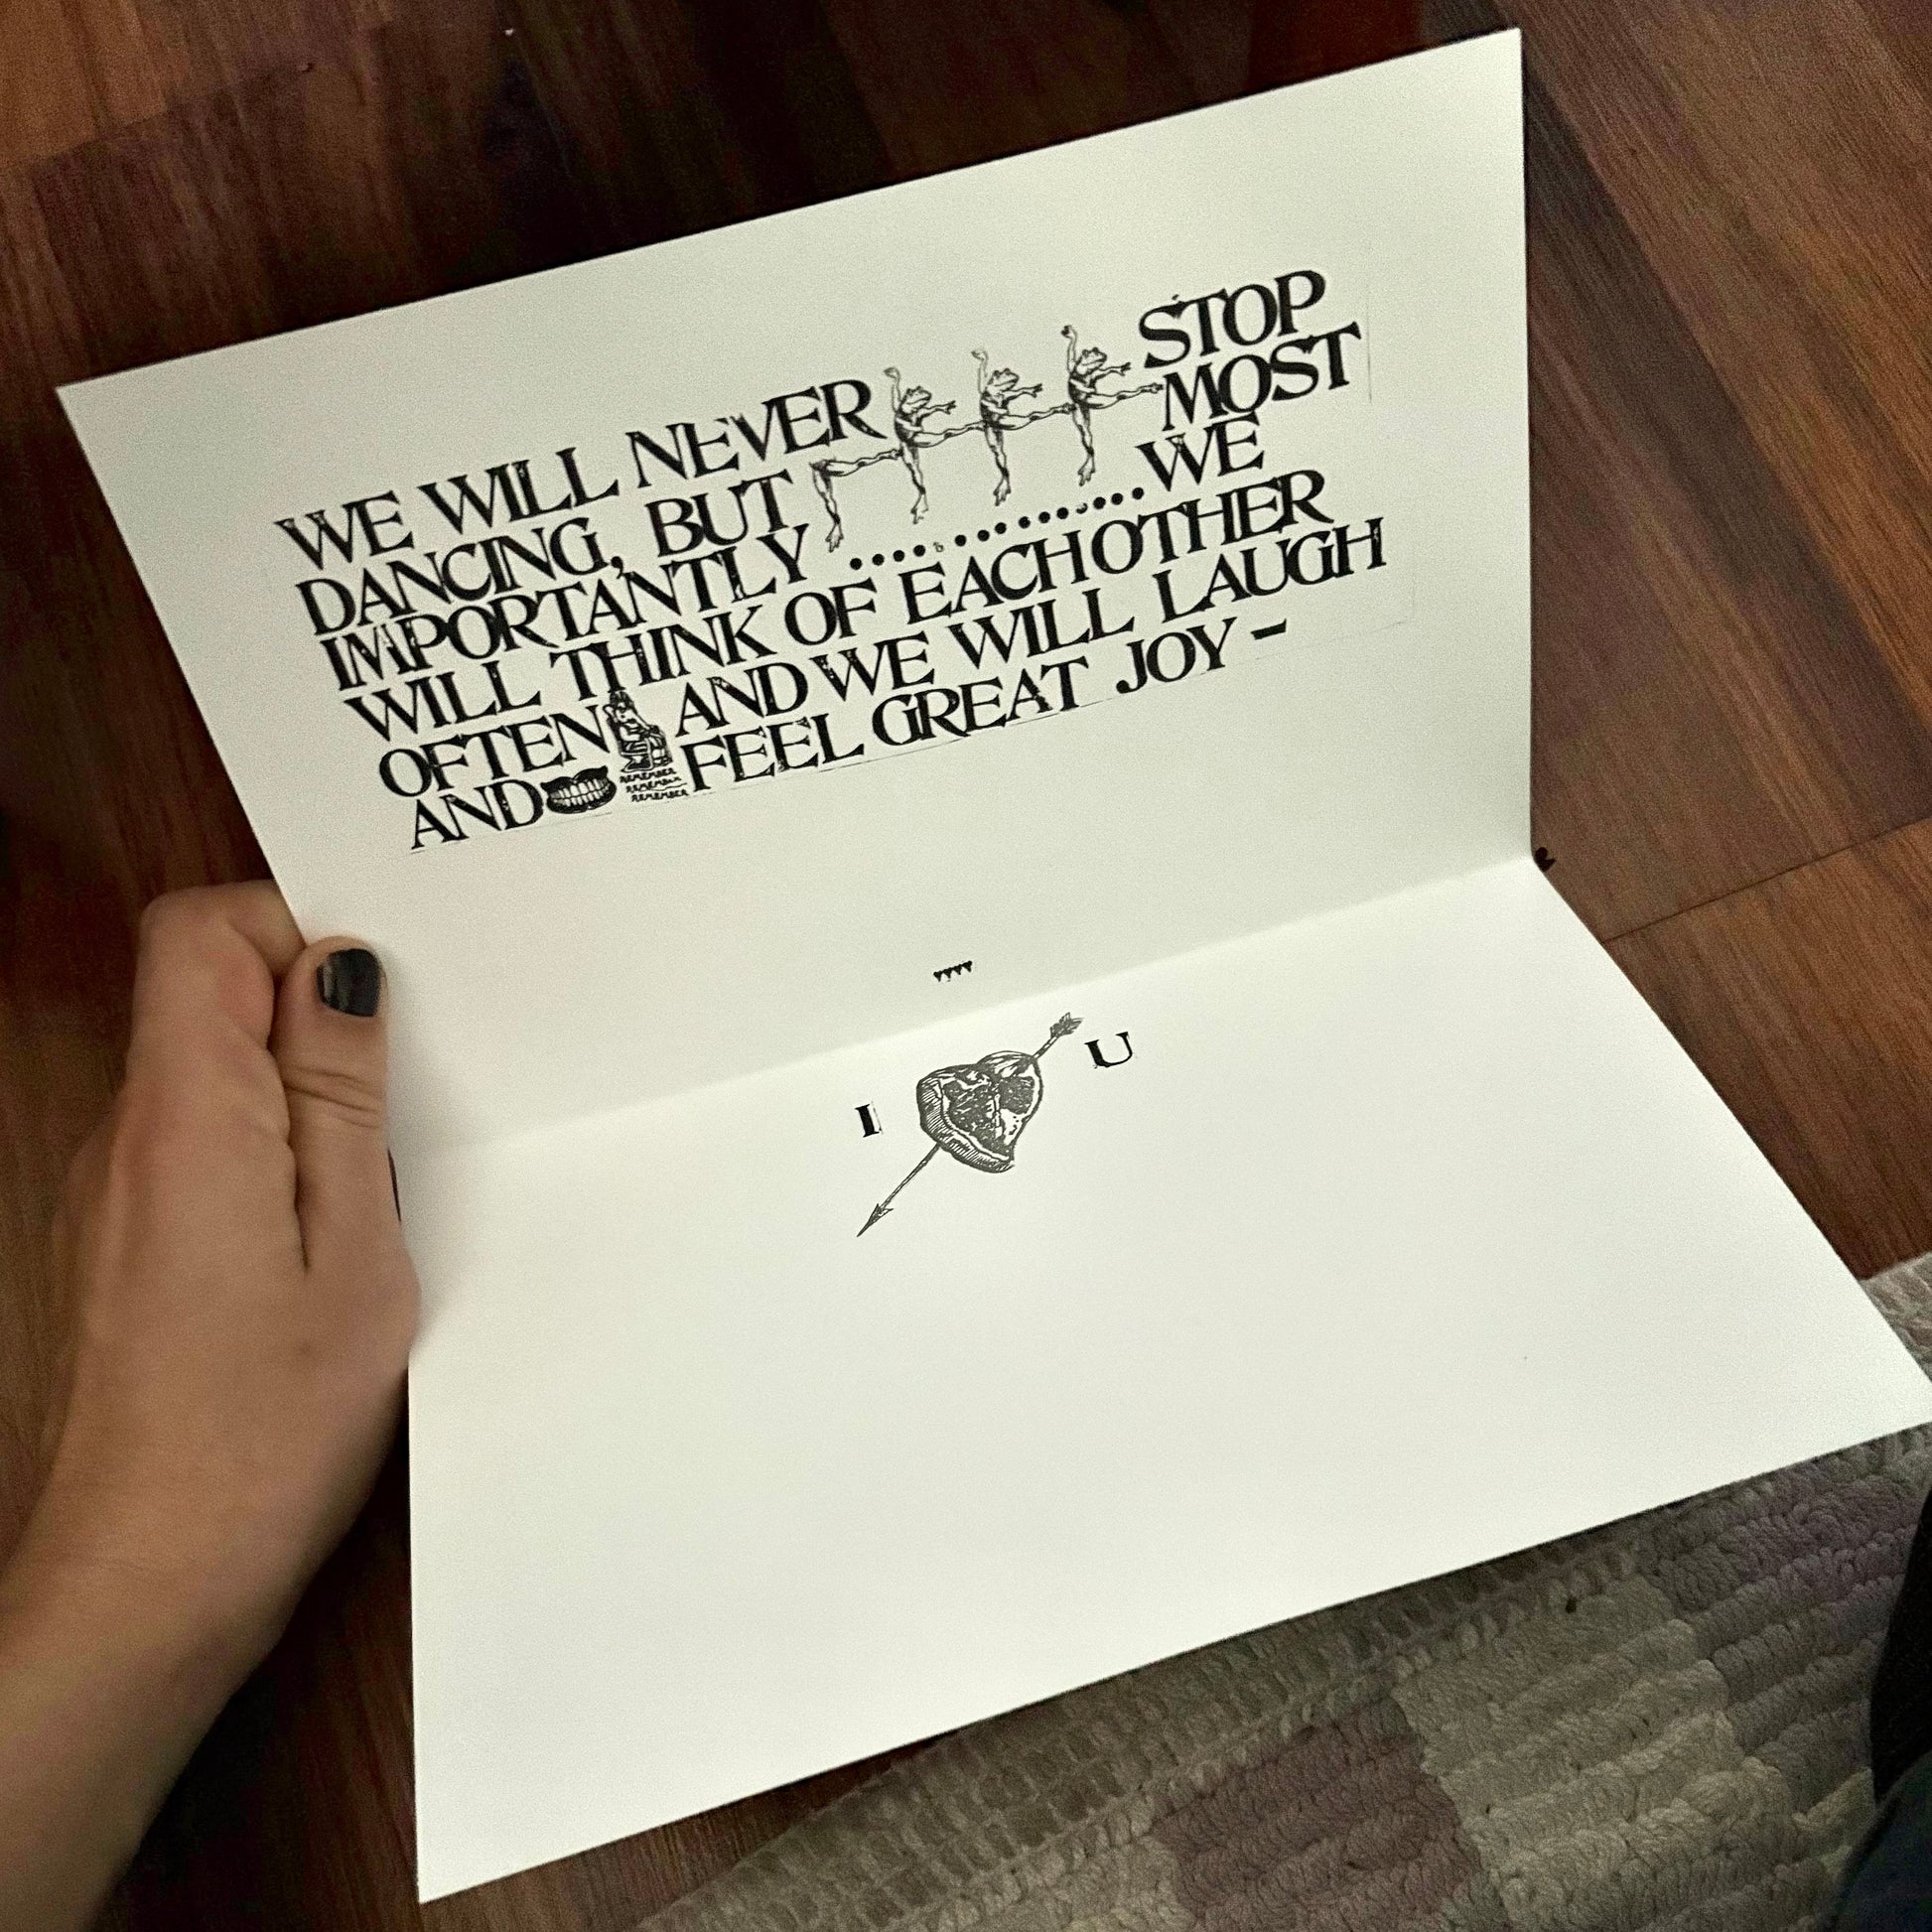 WE WILL NEVER STOP
DANCING, BUT MOST
IMPORTANTLY ................WE
WILL THINK OF EACH OTHER
OFTEN AND WE WILL LAUGH
REMEMBER
REMEMBER
REMEMBER
AND FEEL GREAT JOY -
I U